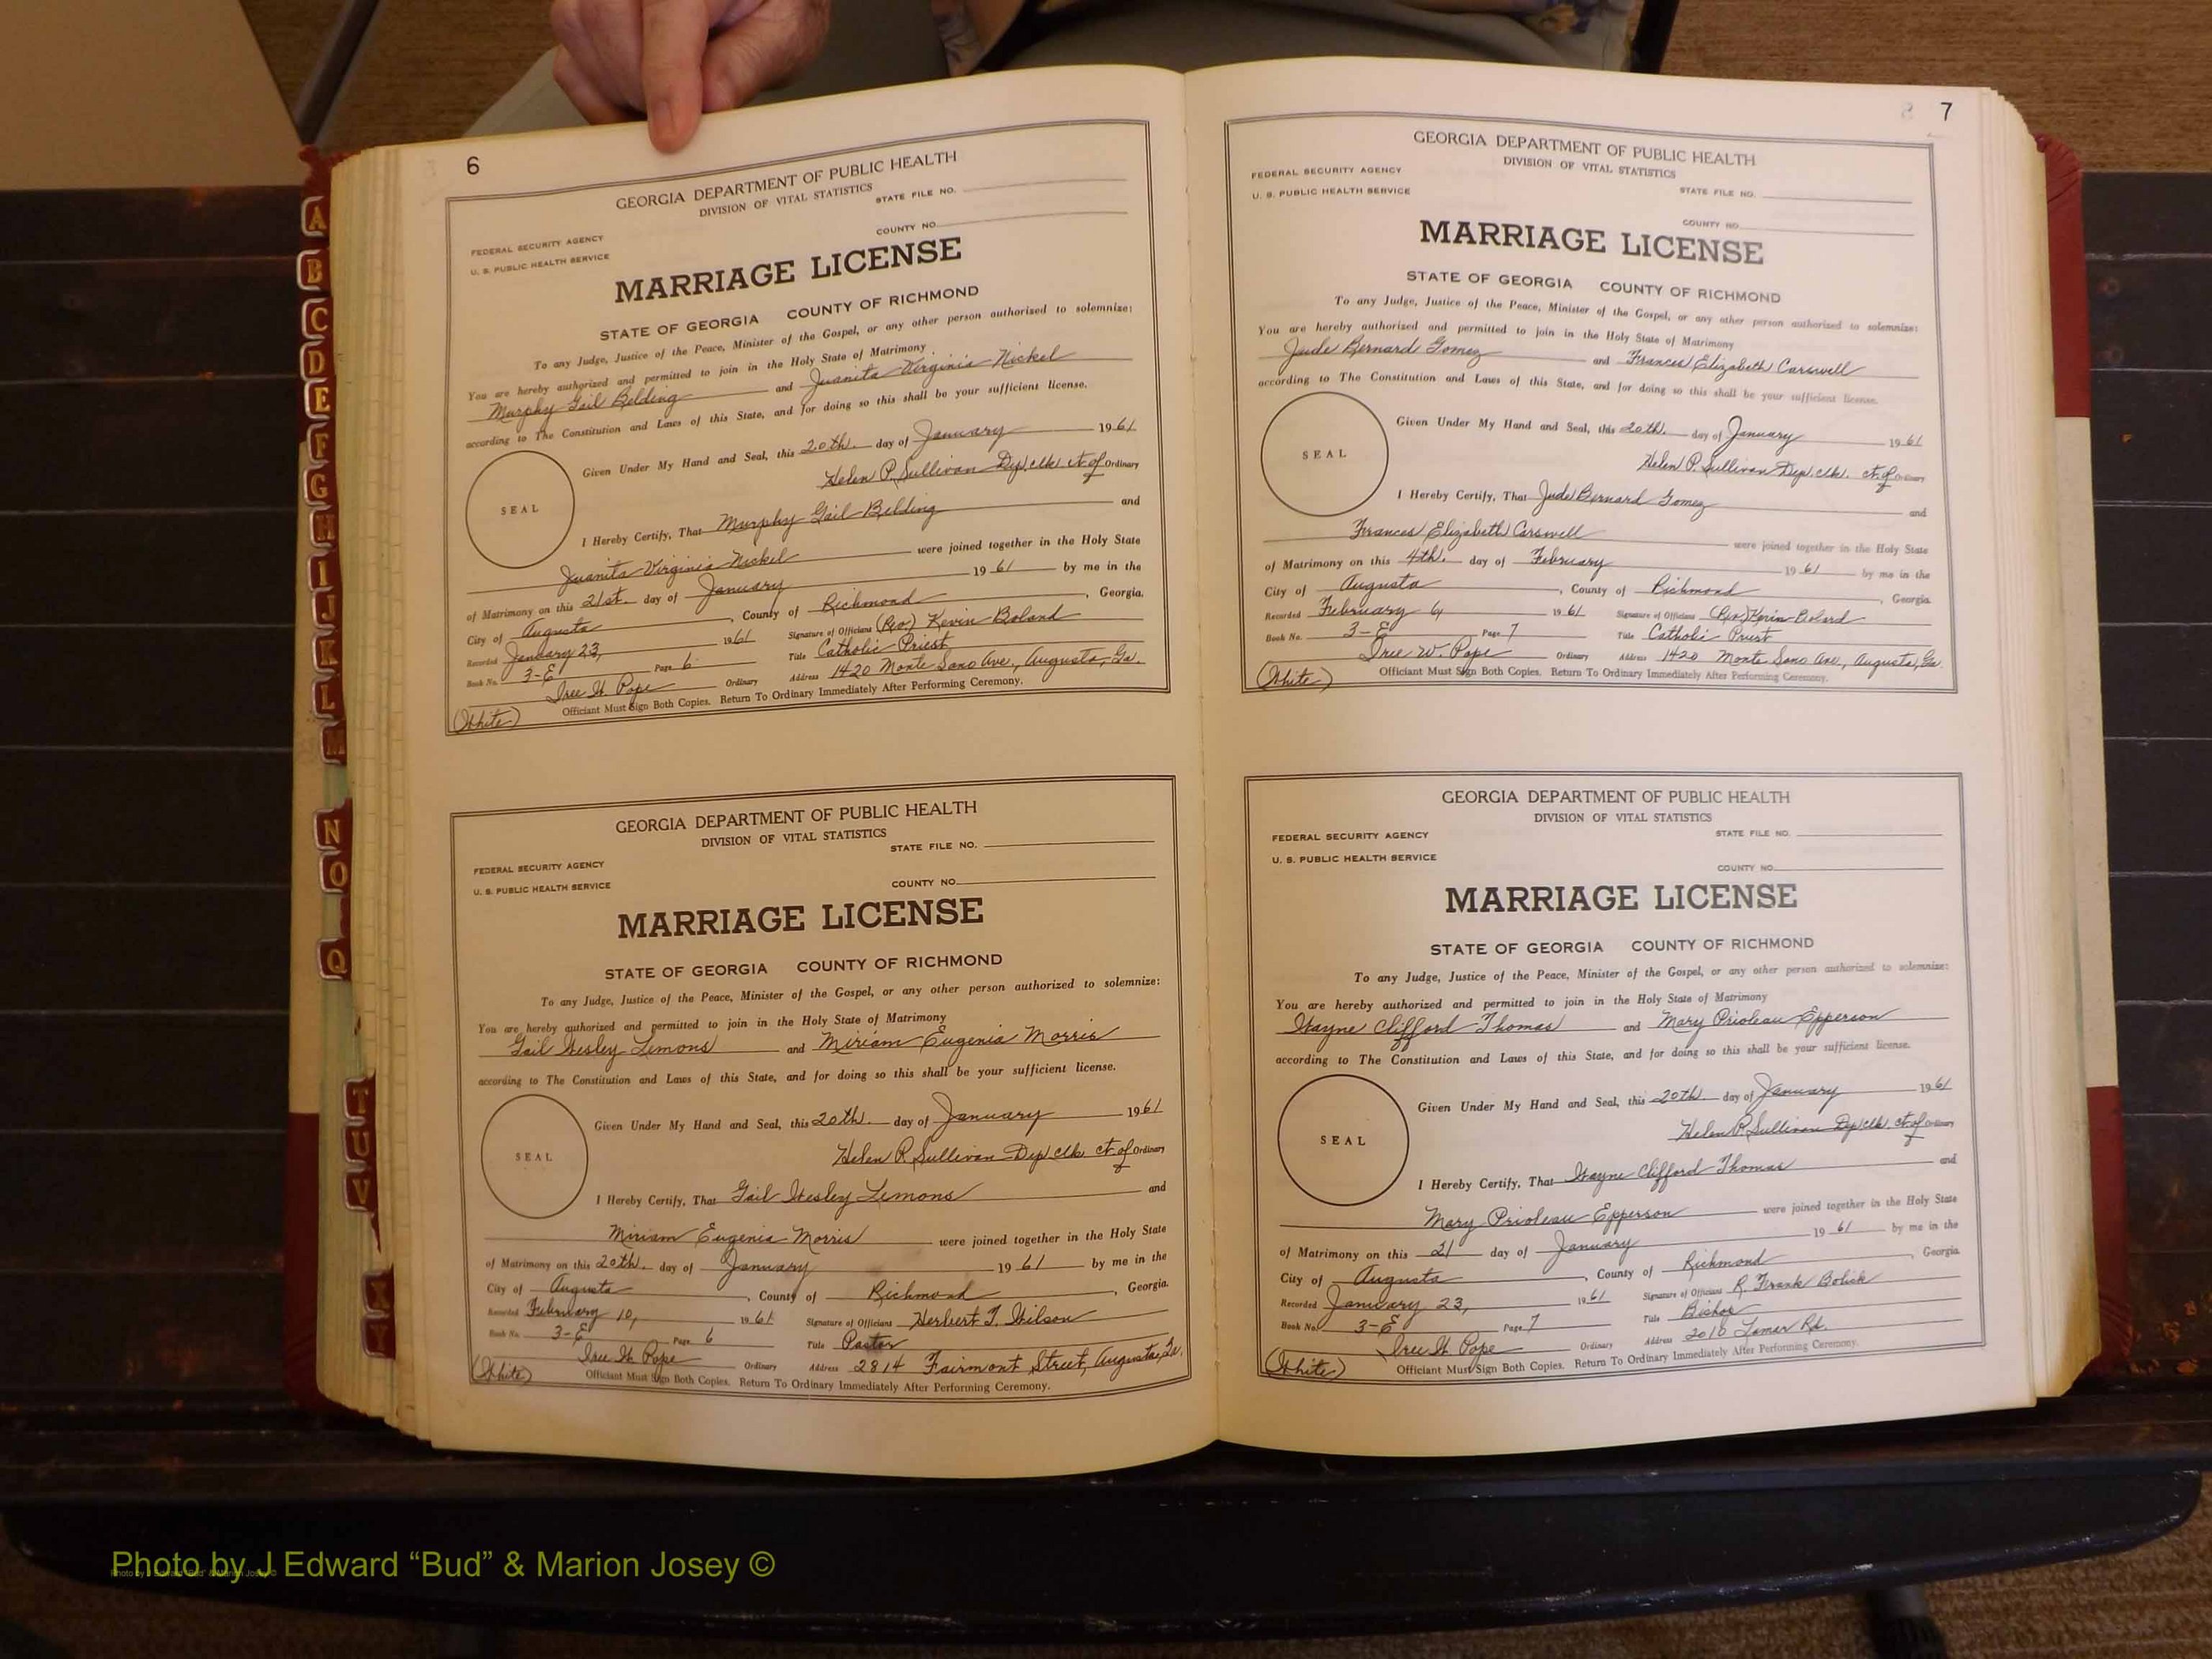 6
GEORGIA DEPARTMENT OF PUBLIC HEALTH
DIVISION OF VITAL STATISTICS
STATE FILE NO.
FEDERAL SECURITY AGENCY
U. S. PUBLIC HEALTH SERVICE
COUNTY NO.
MARRIAGE LICENSE
STATE OF GEORGIA COUNTY OF RICHMOND
To any Judge, Justice of the Peace, Minister of the Gospel, or any other person authorized to solemnize:
You are hereby authorized and permitted to join in the Holy State of Matrimony
Murphy Gail Belding and Juanita Virginia Nickel
according to The Constitution and Laws of this State, and for doing so this shall be your sufficient license.
Given Under My Hand and Seal, this 20th. day of January 1961
Helen P. Sullivan Dep. clk. ct. of Ordinary
SEAL
I Hereby Certify, That Murphy Gail Belding and
Juanita Virginia Nickel were joined together in the Holy State
of Matrimony on this 21st. day of January 1961 by me in the
City of Augusta, County of Richmond, Georgia.
Recorded January 23, 1961 Signature of Officiant (Rev.) Kevin Boland
Book No. 3-E Page 6 Title Catholic Priest
Pope Ordinary Address 1420 Monte Sano Ave., Augusta, Ga.
(White) Officiant Must Sign Both Copies. Return To Ordinary Immediately After Performing Ceremony.
GEORGIA DEPARTMENT OF PUBLIC HEALTH
DIVISION OF VITAL STATISTICS
STATE FILE NO.
FEDERAL SECURITY AGENCY
U. S. PUBLIC HEALTH SERVICE
COUNTY NO.
MARRIAGE LICENSE
STATE OF GEORGIA COUNTY OF RICHMOND
To any Judge, Justice of the Peace, Minister of the Gospel, or any other person authorized to solemnize:
You are hereby authorized and permitted to join in the Holy State of Matrimony
Gail Wesley Lemons and Miriam Eugenia Morris
according to The Constitution and Laws of this State, and for doing so this shall be your sufficient license.
Given Under My Hand and Seal, this 20th. day of January 1961
Helen P. Sullivan Dep clk ct. of Ordinary
SEAL
I Hereby Certify, That Gail Wesley Lemons and
Miriam Eugenia Morris were joined together in the Holy State
of Matrimony on this 20th. day of January 1961 by me in the
City of Augusta, County of Richmond, Georgia.
Recorded February 10, 1961 Signature of Officiant Herbert J. Wilson
Book No. 3-E Page 6 Title Pastor
Pope Ordinary Address 2814 Fairmont Street, Augusta, Ga.
(White) Officiant Must Sign Both Copies. Return To Ordinary Immediately After Performing Ceremony.
7
GEORGIA DEPARTMENT OF PUBLIC HEALTH
DIVISION OF VITAL STATISTICS
FEDERAL SECURITY AGENCY
U. S. PUBLIC HEALTH SERVICE
STATE FILE NO.
COUNTY NO.
MARRIAGE LICENSE
STATE OF GEORGIA COUNTY OF RICHMOND
To any Judge, Justice of the Peace, Minister of the Gospel, or any other person authorized to solemnize:
You are hereby authorized and permitted to join in the Holy State of Matrimony
Jude Bernard Gomez and Frances Elizabeth Carswell
according to The Constitution and Laws of this State, and for doing so this shall be your sufficient license.
Given Under My Hand and Seal, this 20th. day of January 1961
Helen P. Sullivan Dep. clk. ct. of Ordinary
SEAL
I Hereby Certify, That Jude Bernard Gomez and
Frances Elizabeth Carswell were joined together in the Holy State
of Matrimony on this 4th. day of February 1961 by me in the
City of Augusta, County of Richmond, Georgia.
Recorded February 6, 1961 Signature of Officiant (Rev.) Kevin Boland
Book No. 3-E Page 7 Title Catholic Priest
W. Pope Ordinary Address 1420 Monte Sano Ave., Augusta, Ga.
(White) Officiant Must Sign Both Copies. Return To Ordinary Immediately After Performing Ceremony.
GEORGIA DEPARTMENT OF PUBLIC HEALTH
DIVISION OF VITAL STATISTICS
FEDERAL SECURITY AGENCY
STATE FILE NO.
U. S. PUBLIC HEALTH SERVICE
COUNTY NO.
MARRIAGE LICENSE
STATE OF GEORGIA COUNTY OF RICHMOND
To any Judge, Justice of the Peace, Minister of the Gospel, or any other person authorized to solemnize:
You are hereby authorized and permitted to join in the Holy State of Matrimony
Wayne Clifford Thomas and Mary Prioleau Epperson
according to The Constitution and Laws of this State, and for doing so this shall be your sufficient license.
Given Under My Hand and Seal, this 20th day of January 1961
Helen P. Sullivan Dep clk. ct. of Ordinary
SEAL
I Hereby Certify, That Wayne Clifford Thomas and
Mary Prioleau Epperson were joined together in the Holy State
of Matrimony on this 21 day of January 1961 by me in the
City of Augusta, County of Richmond, Georgia.
Recorded January 23, 1961 Signature of Officiant R. Frank Bolick
Book No. 3-E Page 7 Title Bishop
Pope Ordinary Address 2010 Rd.
(White) Officiant Must Sign Both Copies. Return To Ordinary Immediately After Performing Ceremony.
A
B
C
D
E
F
G
H
I
J
K
L
M
N
O
Q
T
U
V
X
Y
Photo by J Edward “Bud” & Marion Josey ©
Photo by J Edward “Bud” & Marion Josey ©